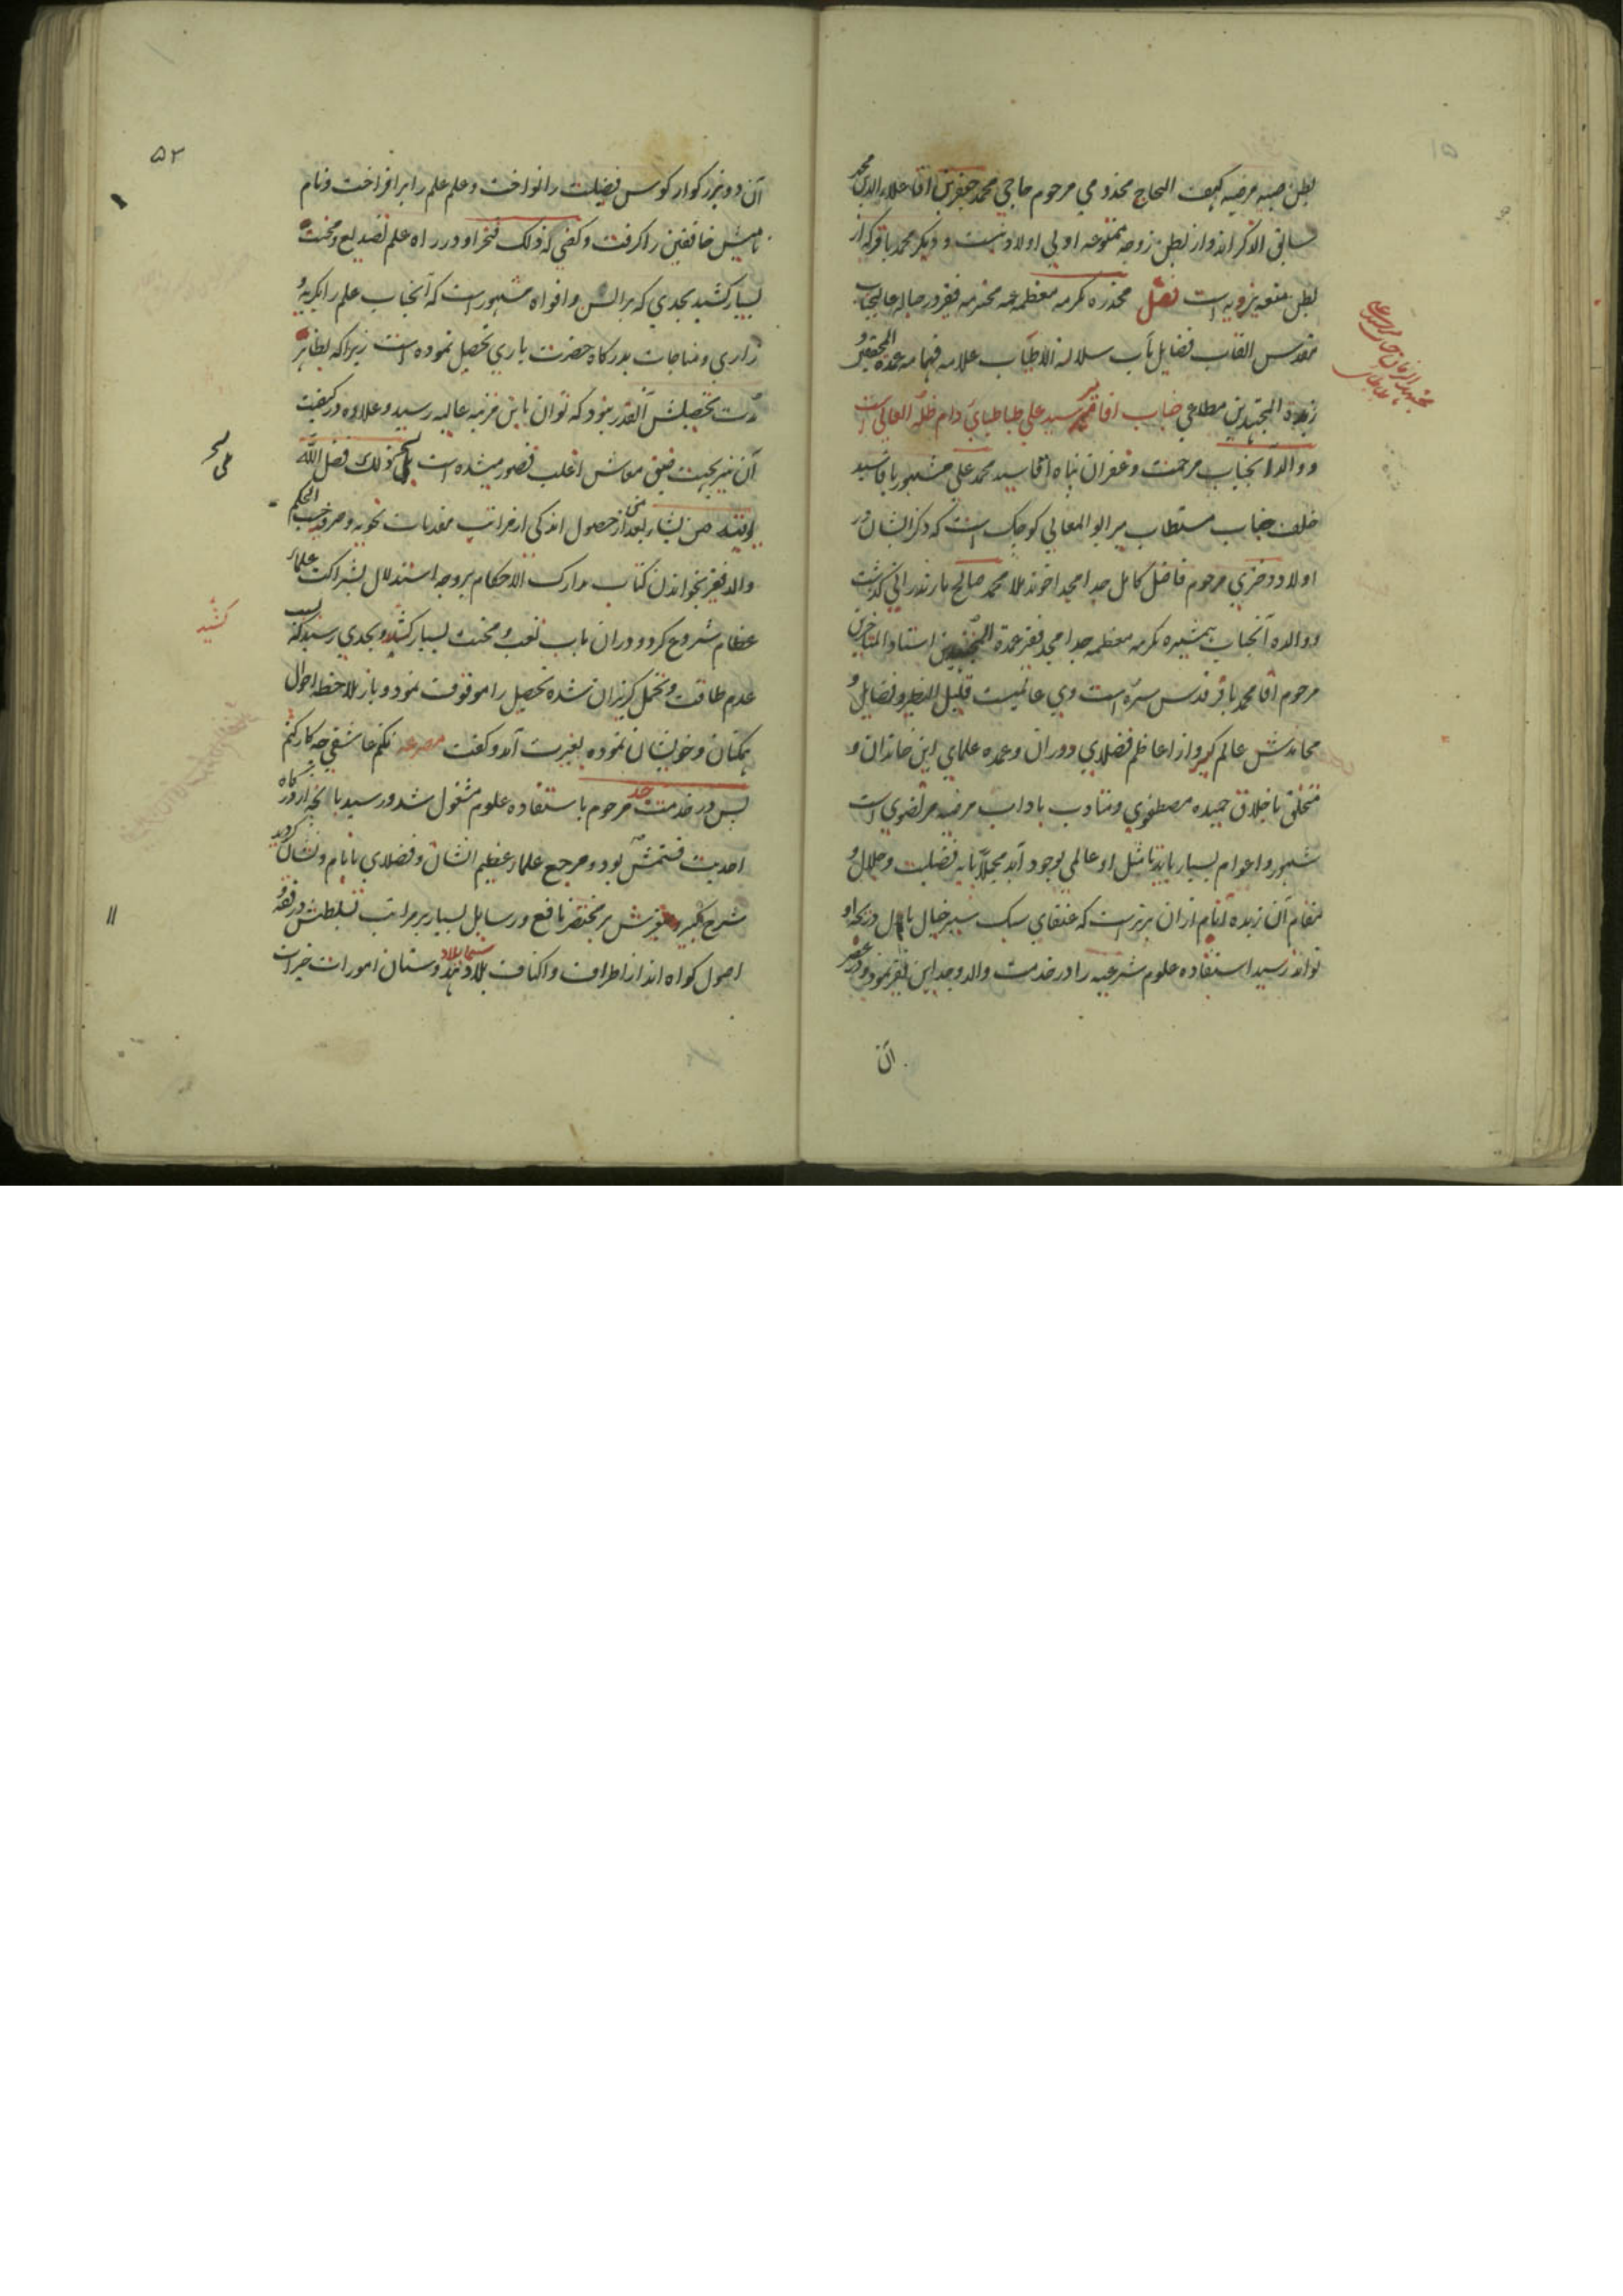 بطن صبیه مرضیه کهف الحاج مخدومی مرحوم حاجی محمد جعفر بن اقا علاء الدین محمد
سابق الذکراند و از بطن زوجه ممتوعه اولی اولاد نیست و دیگر محمد باقر که از
بطن متعه یزدیه است فصل مخدره مکرمه معظمه عمه محترمه فقیر در حباله عالیجناب
مقدس القاب فضایل مآب سلالة الاطیاب علامه فهامه عمدة المحققین و
زبدة المجتهدین مطاعی جناب اقا میر سید علی طباطبای دام ظله العالی است
و والد آنجناب مرحمت و غفران پناه اقا سید محمد علی مشهور باقا سید
خلف جناب مستطاب میر ابو المعالی کوچک است که ذکر ایشان در
اولاد دختری مرحوم فاضل کامل جد امجد اخوند ملا محمد صالح مازندرانی گذشت
و والده آنجناب همشیره مکرمه معظمه جد امجد فقیر عمدة المجتهدین استاد المتاخرین
مرحوم اقا محمد باقر قدس سره است وی عالمیست قلیل النظیر و فضایل و
محامدش عالم گیر و از اعاظم فضلای دوران و عمده علمای این خاندان و
متخلق باخلاق حمیده مصطفوی و متادب باداب مرضیه مرتضوی است
شهور و اعوام بسیار باید تا مثل او عالمی بوجود آید مجملا پایه فضیلت و جلال و
مقام آن زبده انام از ان برتر است که عنقای سبک سیر خیال بال در نکه او
تواند رسید استفاده علوم شرعیه را در خدمت والد و جد این فقیر نمود و در عصر
آن
مجتهد الزمان جناب میر سید علی طباطبای
۵۲
آن دو بزرکوار کوس فضیلت را نواخت و علم علم را برافراخت و نام
نامیش خافقین را کرفت و کفی به ذلک فخرا و در راه علم تصدیع و محنت
بسیار کشید بحدی که بر السن و افواه مشهور است که آنجناب علم را بکریه و
زاری و مناجات بدرکاه حضرت باری تحصیل نموده است زیرا که بظاهر
مدت تحصیلش آنقدر نبود که توان باین مرتبه عالیه رسید و علاوه در کیفیت
آن نیز بجهت ضیق معاش اغلب قصور میشده است بلی ذلک فضل الله
یوتیه من یشاء بعد از حصول اندکی از مراتب مقدمات نحویه و صرفیه حسب الحکم
والد فقیر بخواندن کتاب مدارک الاحکام بر وجه استدلال بشراکت علمای
عظام شروع کرد و در ان باب تعب و محنت بسیار کشید و بحدی رسید که بسبب
عدم طاقت و تحمل کریزان شده تحصیل را موقوف نمود و باز بملاحظه احوال
همکنان و خویشان نموده بغیرت آمد و کفت مصرعه نکنم عاشقی چه کار کنم
پس در خدمت جد مرحوم باستفاده علوم مشغول شد و رسید بآنچه از درکاه
احدیت قسمتش بود و مرجع علماء عظیم الشان و فضلای با نام و نشان کردید
شرح کبیر و صغیرش بر مختصر نافع و رسایل بسیار بر مراتب تسلطش در فقه و
اصول کواه اند از اطراف و اکناف بلاد سیما بلاد هندوستان امورات خیرات
کشید